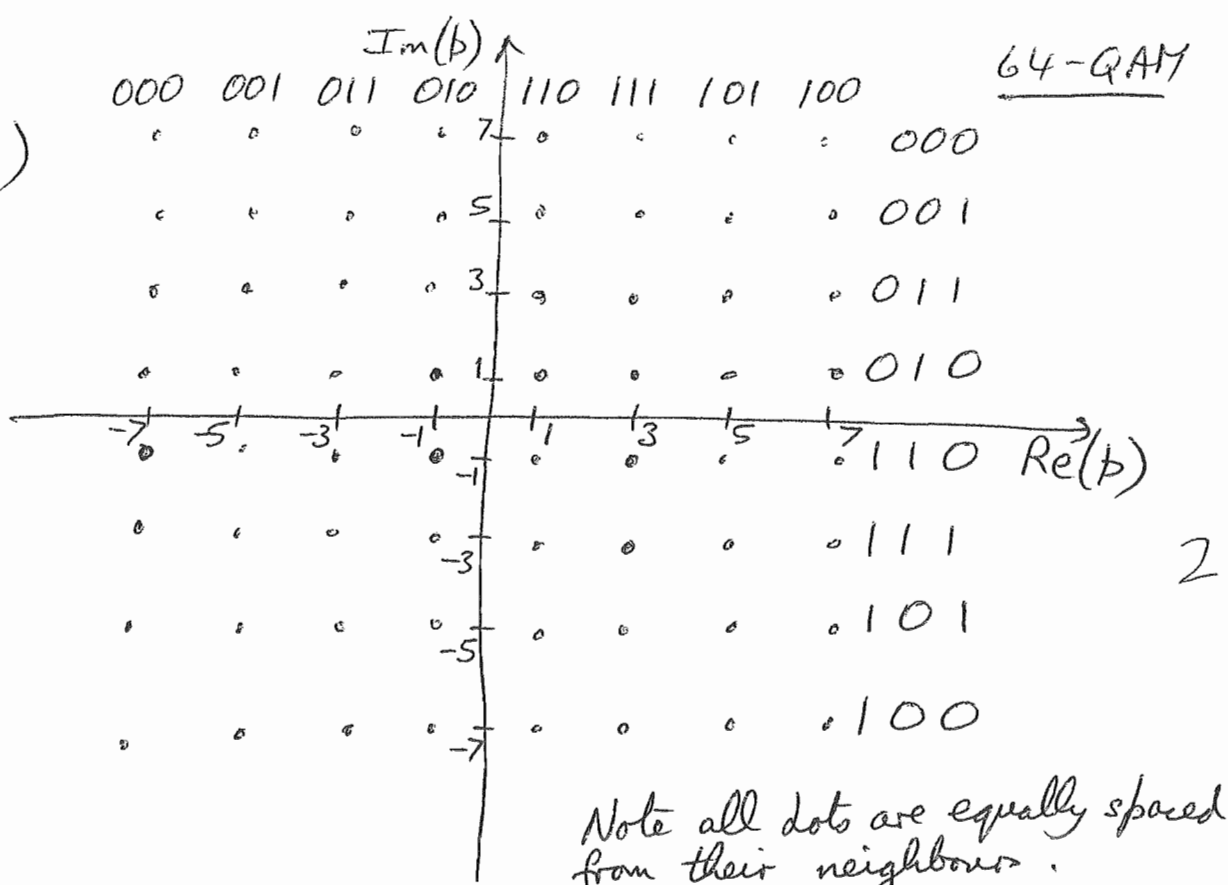 Im(b)
64-QAM
000 001 011 010 110 111 101 100
)
7 000
5 001
3 011
1 010
-7 -5 -3 -1 1 3 5 7
-1 110 Re(b)
-3 111
2
-5 101
-7 100
Note all dots are equally spaced
from their neighbours.